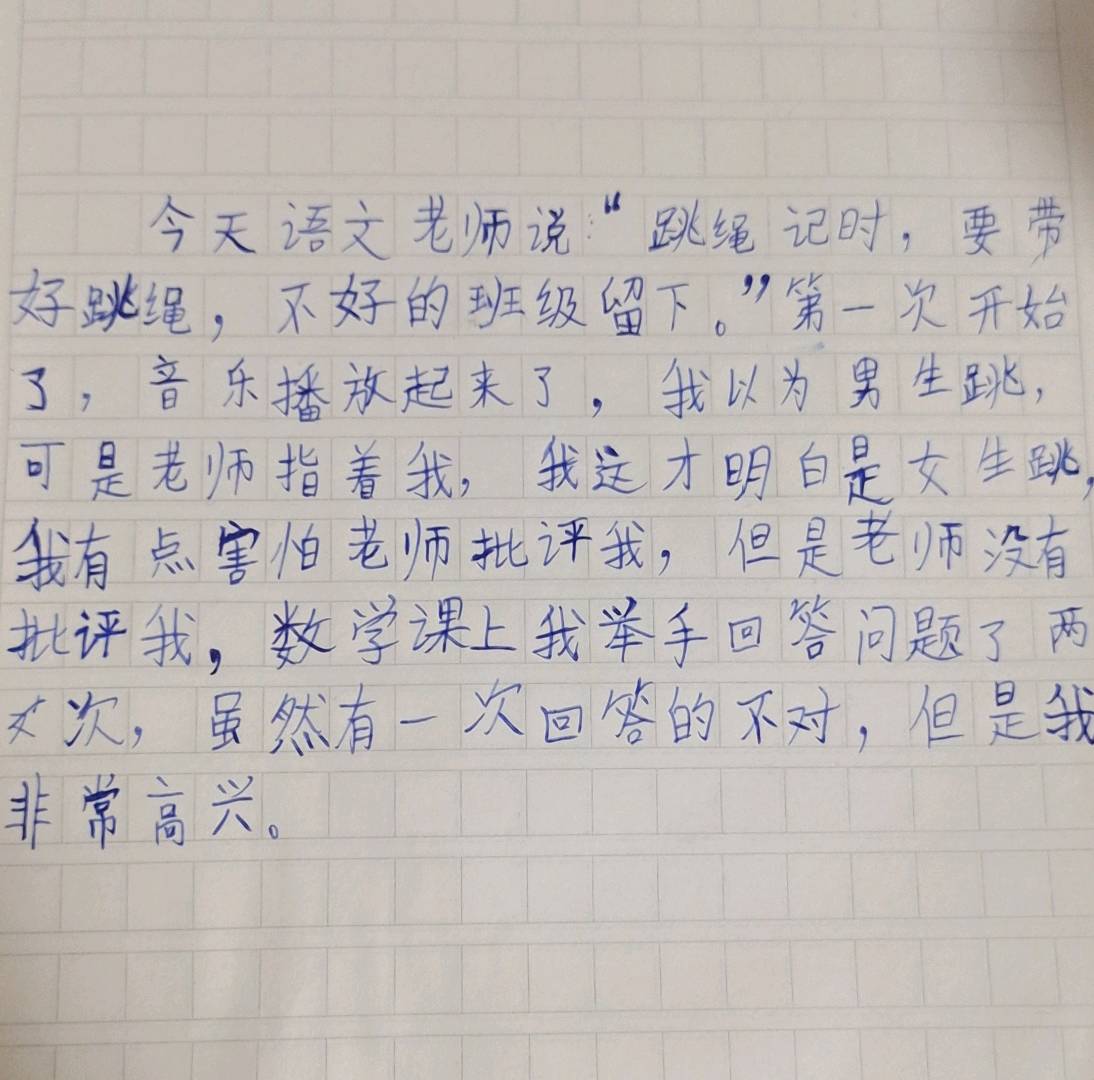 今天语文老师说:“跳绳记时，要带
好跳绳，不好的班级留下。”第一次开始
了，音乐播放起来了，我以为男生跳，
可是老师指着我，我这才明白是女生跳，
我有点害怕老师批评我，但是老师没有
批评我，数学课上我举手回答问题了两
次，虽然有一次回答的不对，但是我
非常高兴。